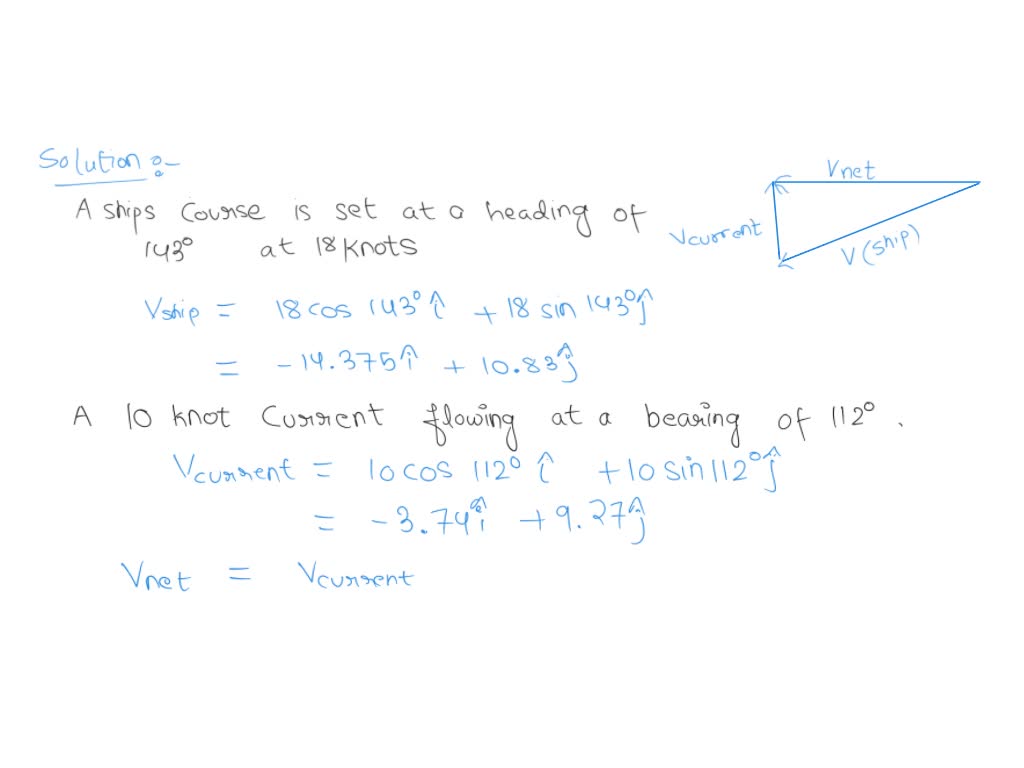 Solution :-
A ships course is set at a heading of
143° at 18 knots
Vnet
Vcurrent
V (ship)
Vship = 18 cos 143° î + 18 sin 143° ĵ
= -14.375 î + 10.83 ĵ
A 10 knot current flowing at a bearing of 112° .
Vcurrent = 10 cos 112° î + 10 sin 112° ĵ
= -3.74 î + 9.27 ĵ
Vnet = Vcurrent